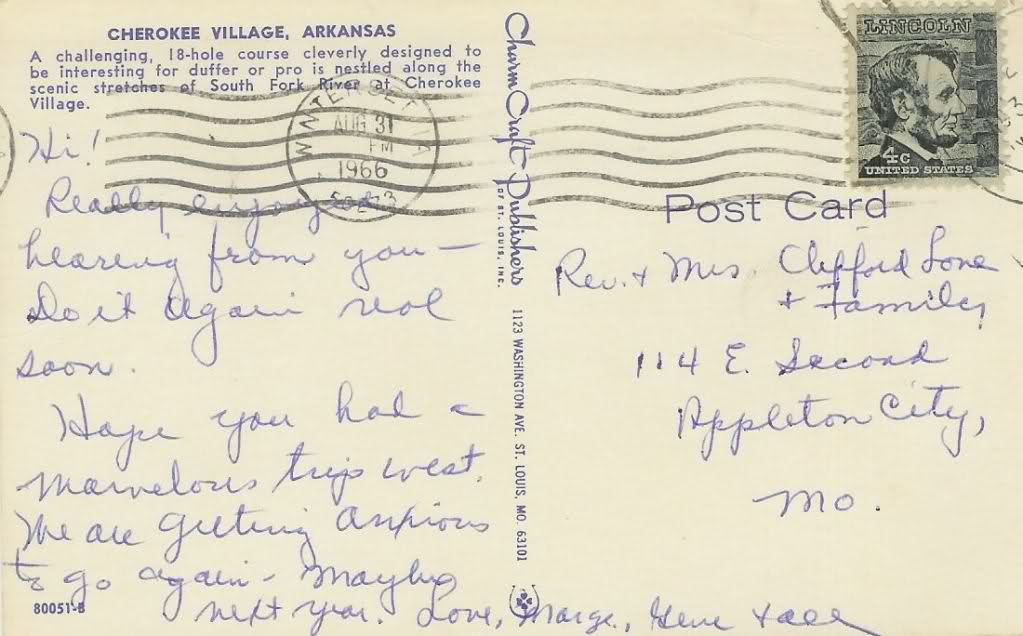 CHEROKEE VILLAGE, ARKANSAS
A challenging, 18-hole course cleverly designed to
be interesting for duffer or pro is nestled along the
scenic stretches of South Fork River at Cherokee
Village.
WINTERSET
AUG 31
PM
1966
50273
Hi!
Really enjoyed
hearing from you —
Do it again real
soon.
Hope you had a
marvelous trip west.
We are getting anxious
to go again - Maybe
next year. Love, Marge, Gene & all
80051-B
CharmCraft Publishers
OF ST. LOUIS, INC.
1123 WASHINGTON AVE. ST. LOUIS, MO. 63101
LINCOLN
4c
UNITED STATES
Post Card
Rev. + Mrs. Clifford
+ Family,
114 E. Second
Appleton City,
Mo.